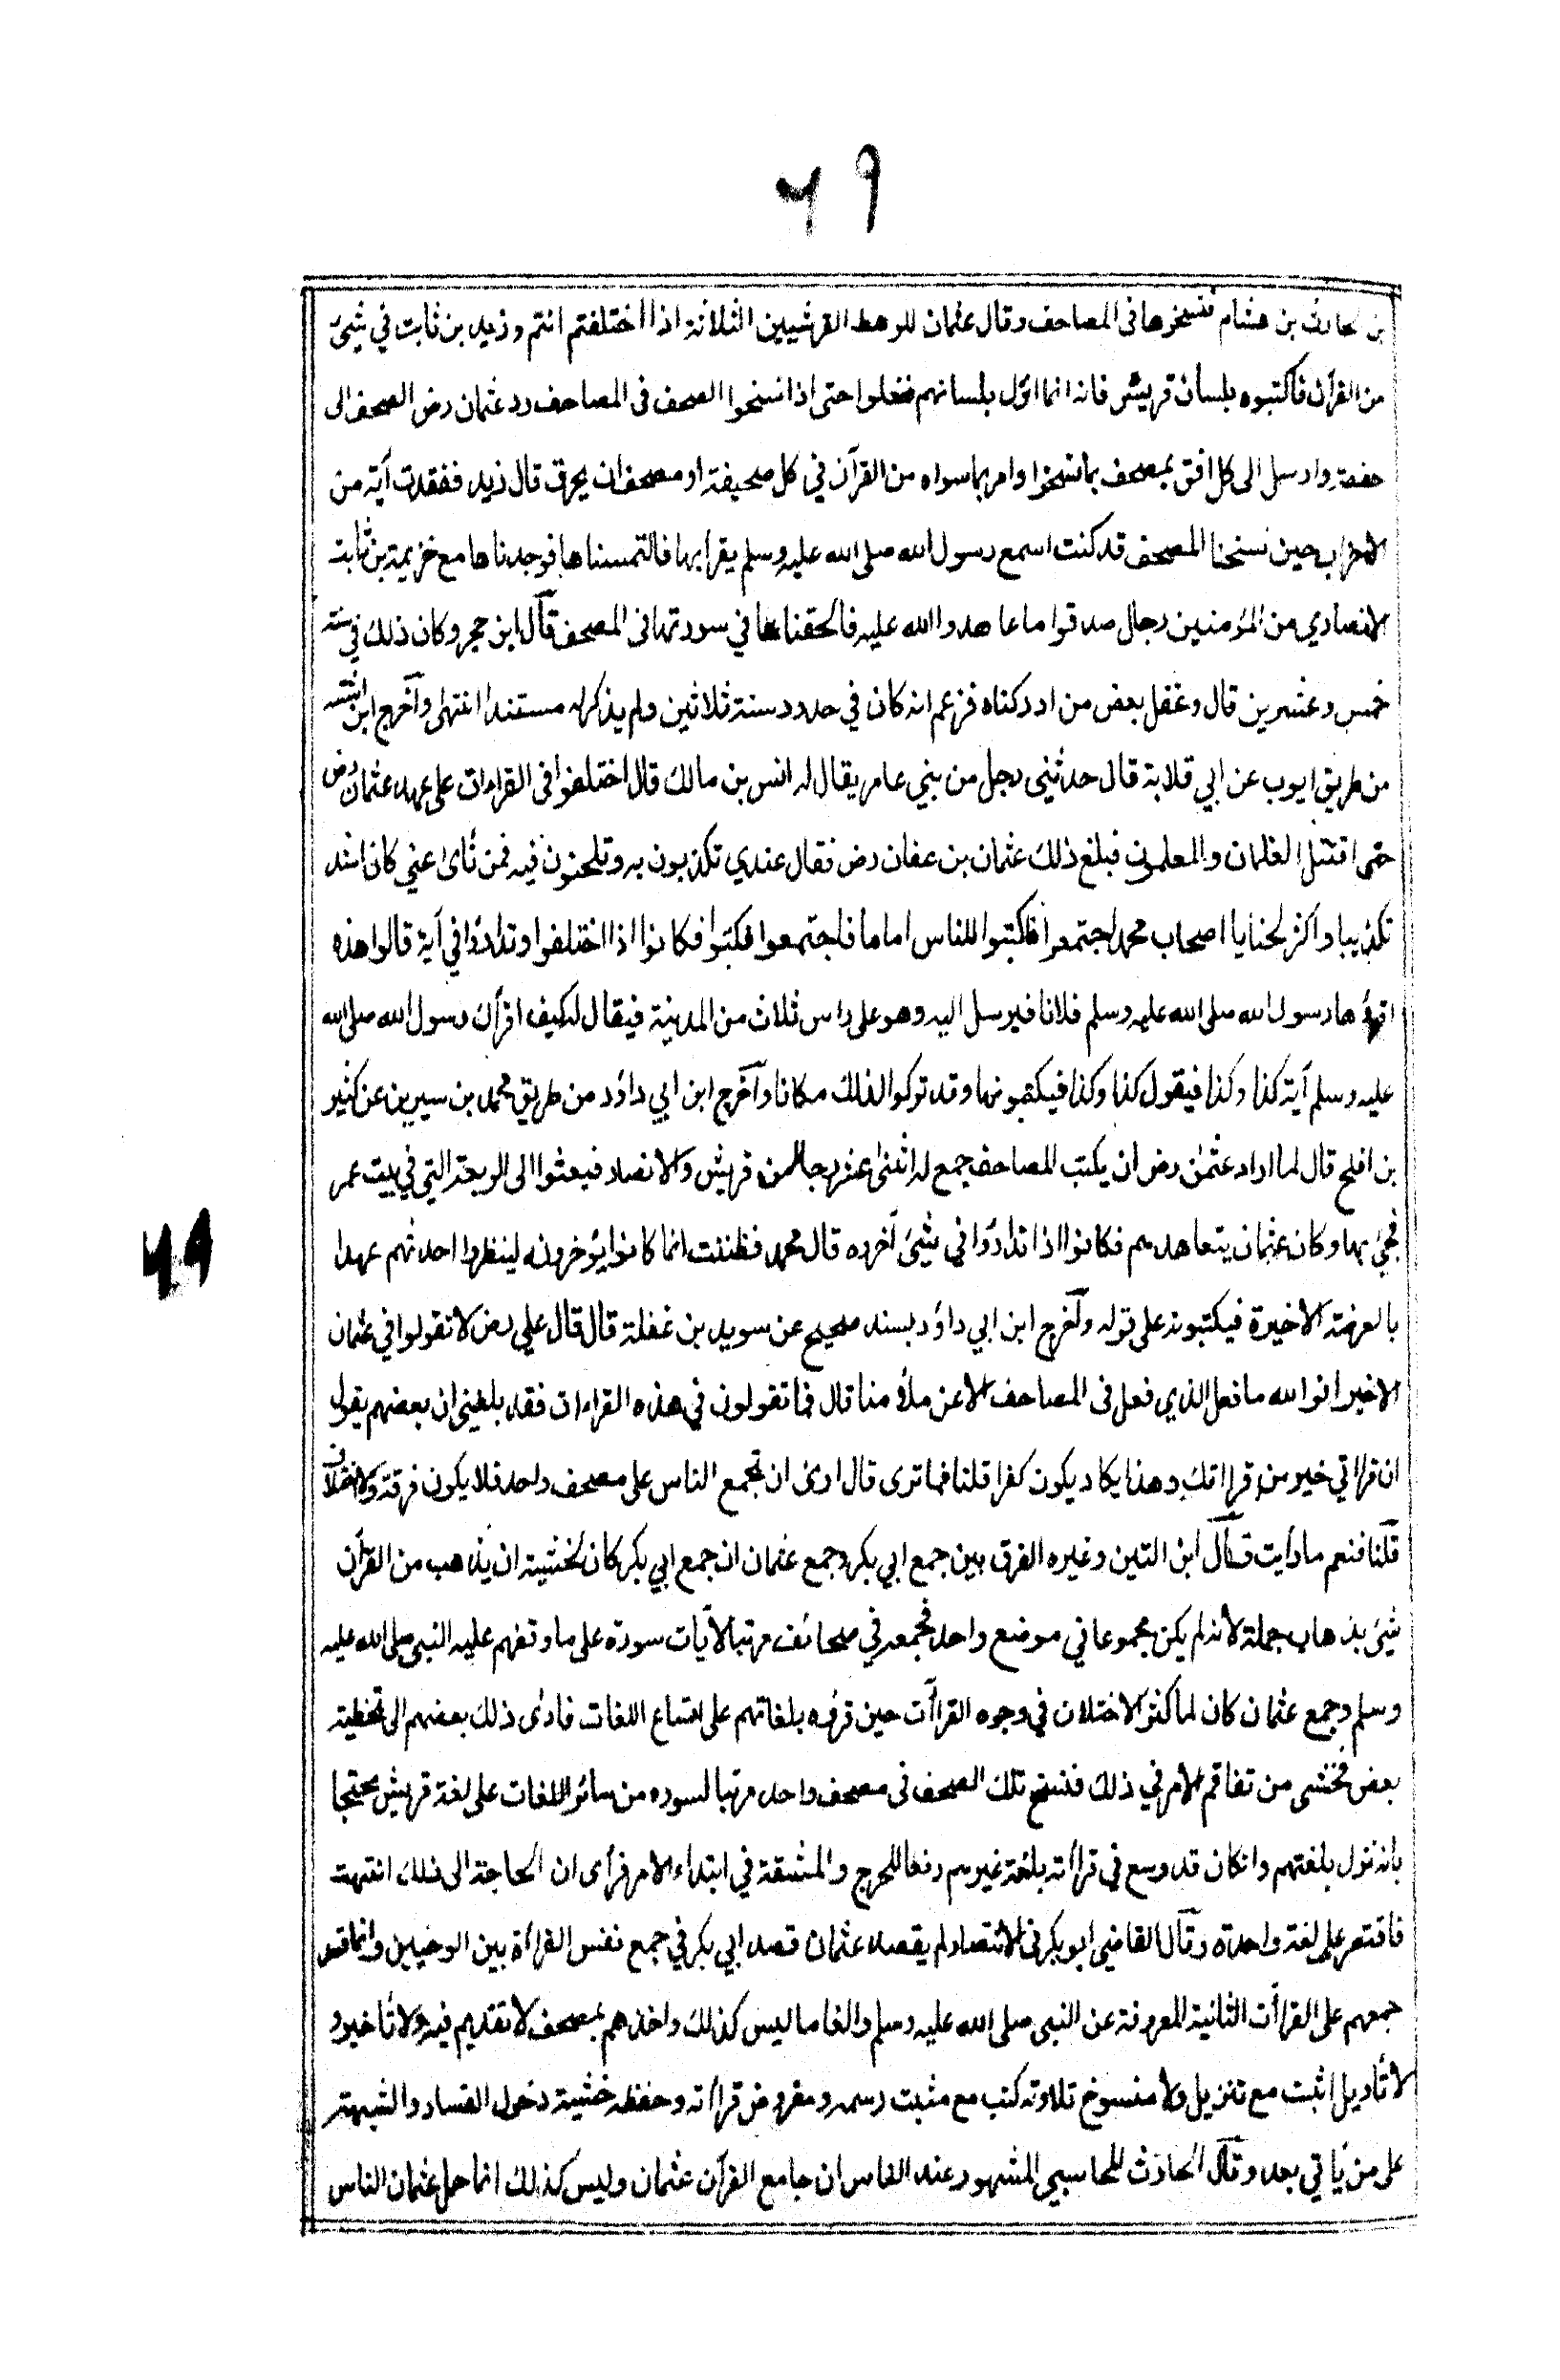 ۶۹
بن الحارث بن هشام فنسخوها فى المصاحف وقال عثمان للرهط القرشيين الثلاثة اذا اختلفتم انتم وزيد بن ثابت في شيئ
من القرآن فاكتبوه بلسان قريش فانه انما انزل بلسانهم ففعلوا حتى اذا نسخوا الصحف فى المصاحف رد عثمان رض الصحف الى
حفصة وارسل الى كل افق بمصحف بما نسخوا وامر بما سواه من القرآن في كل صحيفة او مصحف ان يحرق قال زيد ففقدت آية من
الاحزاب حين نسخنا المصحف قد كنت اسمع رسول الله صلى الله عليه وسلم يقرأ بها فالتمسناها فوجدناها مع خزيمة بن ثابت
الانصاري من المؤمنين رجال صدقوا ما عاهدوا الله عليه فالحقناها في سورتها فى المصحف قال ابن حجر وكان ذلك في سنة
خمس وعشرين قال وغفل بعض من ادركناه فزعم انه كان في حدود سنة ثلاثين ولم يذكر له مستندا انتهى وآخرج ابن اشتة
من طريق ايوب عن ابي قلابة قال حدثني رجل من بني عامر يقال له انس بن مالك قال اختلفوا فى القراءات على عهد عثمان رض
حتى اقتتل الغلمان والمعلمون فبلغ ذلك عثمان بن عفان رض فقال عندي تكذبون به وتلحنون فيه فمن نأى عني كان اشد
تكذيبا واكثر لحنا يا اصحاب محمد اجتمعوا فاكتبوا للناس اماما فاجتمعوا فكتبوا فكانوا اذا اختلفوا وتدارؤا في آية قالوا هذه
اقرأها رسول الله صلى الله عليه وسلم فلانا فيرسل اليه وهو على راس ثلاث من المدينة فيقال له كيف اقرأك رسول الله صلى الله
عليه وسلم آية كذا وكذا فيقول كذا وكذا فيكتبونها وقد تركوا لذلك مكانا وآخرج ابن ابي داؤد من طريق محمد بن سيرين عن كثير
بن افلح قال لما اراد عثمٰن رض ان يكتب المصاحف جمع له اثنى عشر رجالا من قريش والانصار فبعثوا الى الربعة التي في بيت عمر
فجيئ بها وكان عثمان يتعاهدهم فكانوا اذا تدارؤا في شيئ أخروه قال محمد فظننت انما كانوا يؤخرونه لينظروا احدثهم عهدا
بالعرضة الاخيرة فيكتبونه على قوله وآخرج ابن ابي داؤد بسند صحيح عن سويد بن غفلة قال قال علي رض لا تقولوا في عثمان
الاخيرا فوالله ما فعل الذي فعل فى المصاحف الا عن ملأ منا قال فما تقولون في هذه القراءات فقد بلغني ان بعضهم يقول
ان قراتي خير من قراتك وهذا يكاد يكون كفرا قلنا فما ترى قال ارى ان تجمع الناس على مصحف واحد فلا يكون فرقة ولا اختلاف
قلنا فنعم ما رأيت قال ابن التين وغيره الفرق بين جمع ابي بكر وجمع عثمان ان جمع ابي بكر كان لخشية ان يذهب من القرآن
شيئ بذهاب جملة لانه لم يكن مجموعا في موضع واحد فجمعه في صحائف مرتبا لآيات سوره على ما وقفهم عليه النبي صلى الله عليه
وسلم وجمع عثمان كان لما كثر الاختلاف في وجوه القراآت حين قرؤه بلغاتهم على اتساع اللغات فادى ذلك بعضهم الى تخطية
بعض فخشى من تفاقم الامر في ذلك فنسخ تلك الصحف فى مصحف واحد مرتبا لسوره من سائر اللغات على لغة قريش محتجا
بانه نزل بلغتهم وانكان قد وسع في قراته بلغة غيرهم رفعا للحرج والمشقة في ابتداء الامر فرأى ان الحاجة الى ذلك انتهت
فاقتصر على لغة واحدة وقال القاضي ابو بكر فى الانتصار لم يقصد عثمان قصد ابي بكر في جمع نفس القراة بين الوحيين وانما قصد
جمعهم على القرأت الثانية المعروفة عن النبي صلى الله عليه وسلم والغا ما ليس كذلك واخذهم بمصحف لا تقديم فيه ولا تاخير و
لا تأويل اثبت مع تنزيل ولا منسوخ تلاوته كتب مع مثبت رسمه ومفروض قراته وحفظه خشية دخول الفساد والشبهة
على من يأتي بعد وقال الحارث المحاسبي المشهور عند الناس ان جامع القرآن عثمان وليس كذلك انما حمل عثمان الناس
۶۹